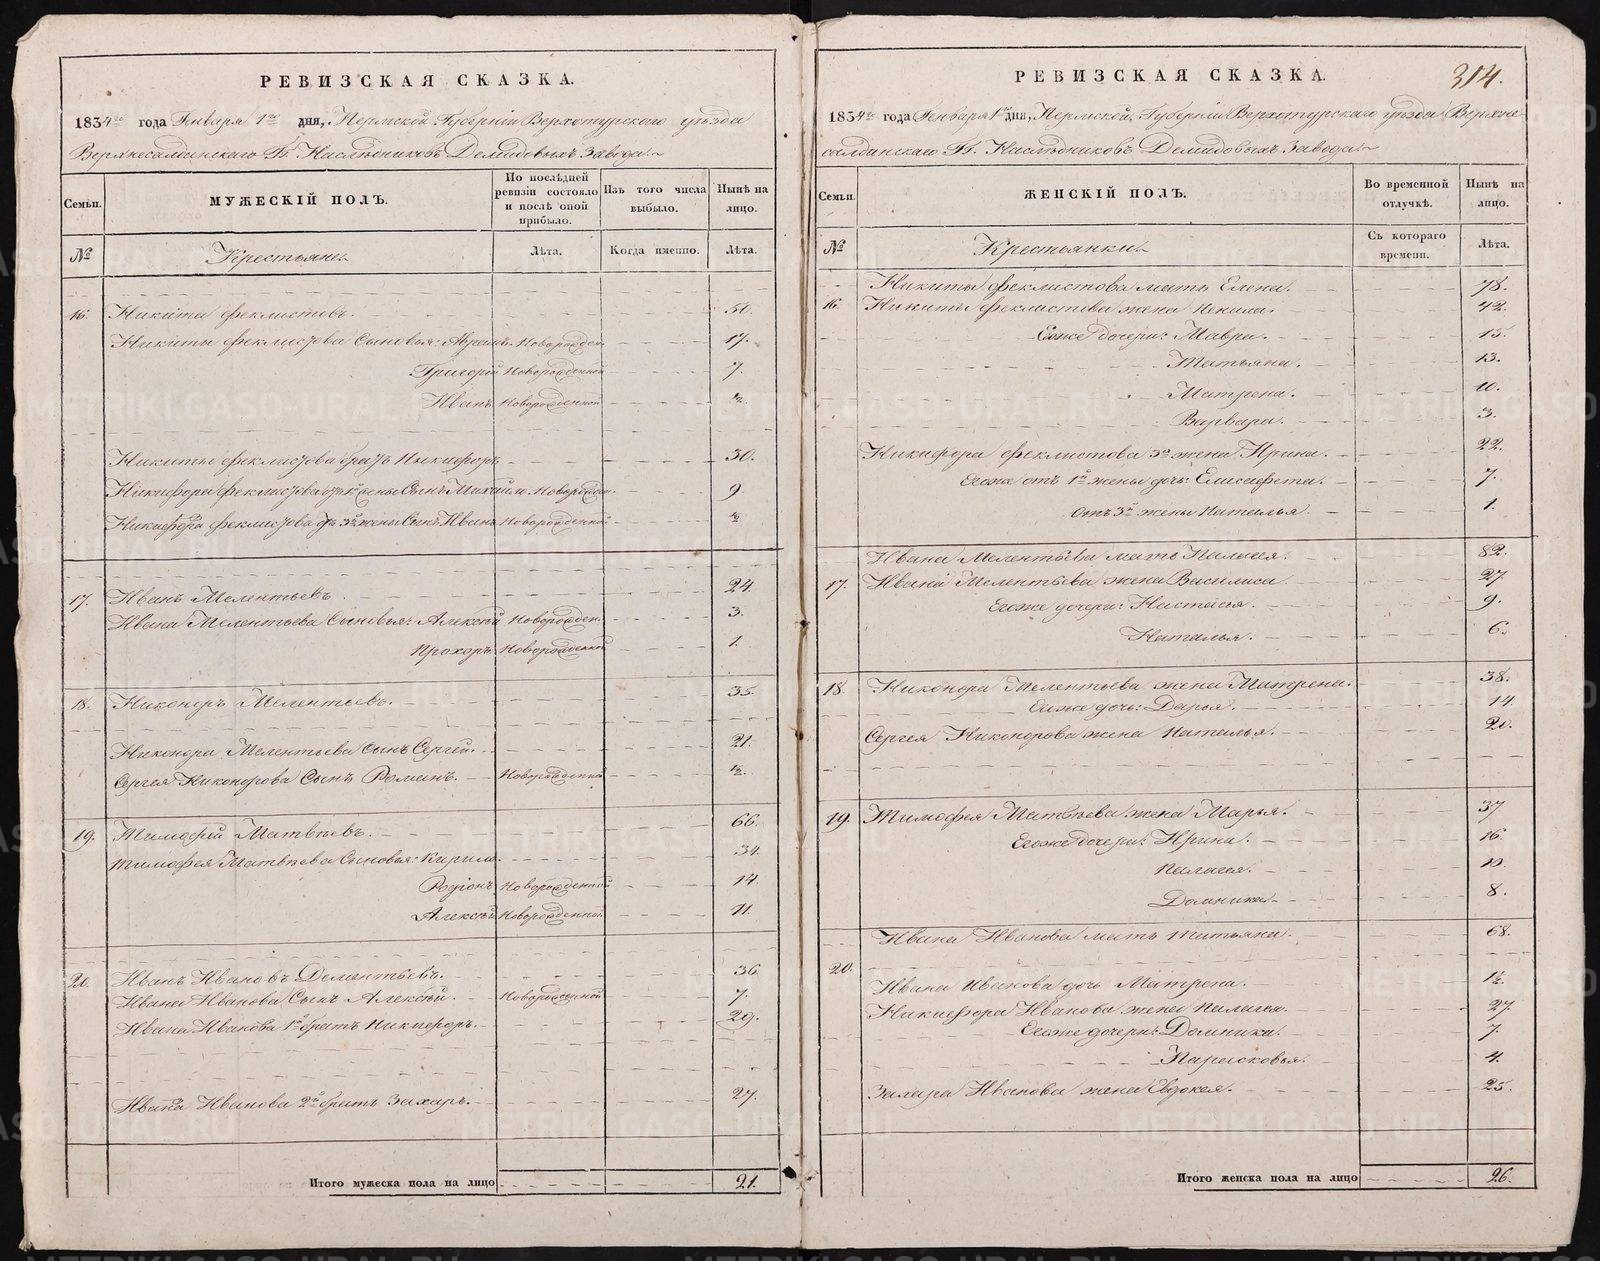 РЕВИЗСКАЯ СКАЗКА.
1834го года Генваря 1го дня, Пермской Губернiи Верхотурского уѣзда
Верхнесалдинскаго Гг. Наслѣдниковъ Демидовыхъ Завода.
Семьи.
МУЖЕСКIЙ ПОЛЪ.
По послѣдней ревизiи состояло и послѣ оной прибыло.
Изъ того числа выбыло.
Нынѣ на лицо.
№
Крестьяне.
Лѣта.
Когда именно.
Лѣта.
16. Никита Феклистовъ. 50.
Никиты Феклистова Сыновья: Новорожден. 17.
Григорiй Новорожденной 7.
Иванъ Новорожденной ½.
Никиты Феклистова братъ Никифоръ 30.
Никифора Феклистова отъ 1й жены Сынъ Михайло Новорожден. 9.
Никифора Феклистова отъ 3й жены Сынъ Иванъ Новорожденной ½
17. Иванъ Мелентьевъ 24.
Ивана Мелентьева Сыновья: Алексѣй Новорожден. 3.
Прохоръ Новорожденной 1.
18. Никоноръ Мелентьевъ. 35.
Никонора Мелентьева Сынъ Сергей. 21.
Сергея Никонорова Сынъ Романъ. Новорожденной ½.
19. Тимофей Матвѣевъ. 66.
Тимофея Матвѣева Сыновья: Кирило. 34.
Родiонъ Новорожденной 14.
Алексѣй Новорожденной 11.
20. Иванъ Ивановъ Дементьевъ. 36.
Ивана Иванова Сынъ Алексѣй. Новорожденной 7.
Ивана Иванова 1й братъ Никифоръ. 29.
Ивана Иванова 2й братъ Захаръ. 27.
Итого мужеска пола на лицо 21.
РЕВИЗСКАЯ СКАЗКА.
314.
1834го года Генваря 1го дня, Пермской Губернiи Верхотурскаго уѣзда Верхне
салдинскаго Гг. Наслѣдниковъ Демидовыхъ Завода.
Семьи.
ЖЕНСКIЙ ПОЛЪ.
Во временной отлучкѣ.
Нынѣ на лицо.
№
Крестьянки.
Съ котораго времени.
Лѣта.
Никиты Феклистова мать Елена. 78.
16. Никиты Феклистова жена Ненила. 42.
Егоже дочери: Мавра. 15.
Татьяна. 13.
Матрена. 10.
Варвара. 3.
Никифора Феклистова 3я жена Ирина. 22.
Егоже отъ 1й жены дочь: Елисафета. 7.
отъ 3й жены Наталья. 1.
Ивана Мелентьева мать Палагея. 82.
17. Ивана Мелентьева жена Василиса 27.
Егоже дочери: Настасья. 9.
Наталья. 6.
18. Никонора Мелентьева жена Матрена. 38.
Егоже дочь: Дарья. 14.
Сергея Никонорова жена Наталья. 20.
19. Тимофея Матвѣева жена Марья. 37
Егоже дочери: Ирина. 16.
Палагея.
Домника. 8.
Ивана Иванова мать Татьяна. 68.
20.
Ивана Иванова дочь Матрена. 1½.
Никифора Иванова жена Палагея. 27.
Егоже дочери: Домника. 7.
Парасковья. 4.
Захара Иванова жена Евдокея. 25.
Итого женска пола на лицо 26.
METRIKI.GASO-URAL.RU